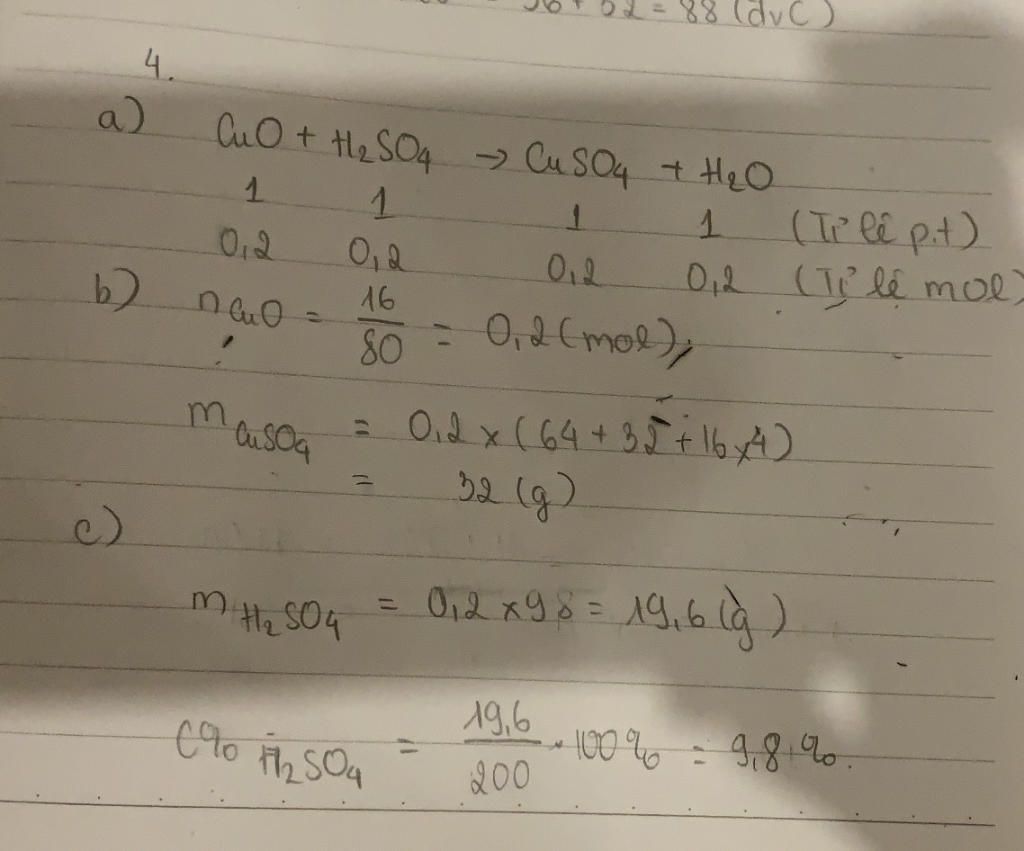 = 56 + 32 = 88 (đvC)
4.
a) CuO + H₂SO₄ → CuSO₄ + H₂O
1 1 1 1 (Tỉ lệ p.t)
0,2 0,2 0,2 0,2 (Tỉ lệ mol)
b) nCuO = 16/80 = 0,2 (mol)
mCuSO₄ = 0,2 x (64 + 32 + 16 x 4)
= 32 (g)
c)
mH₂SO₄ = 0,2 x 98 = 19,6 (g)
C% H₂SO₄ = 19,6/200 . 100% = 9,8 %.